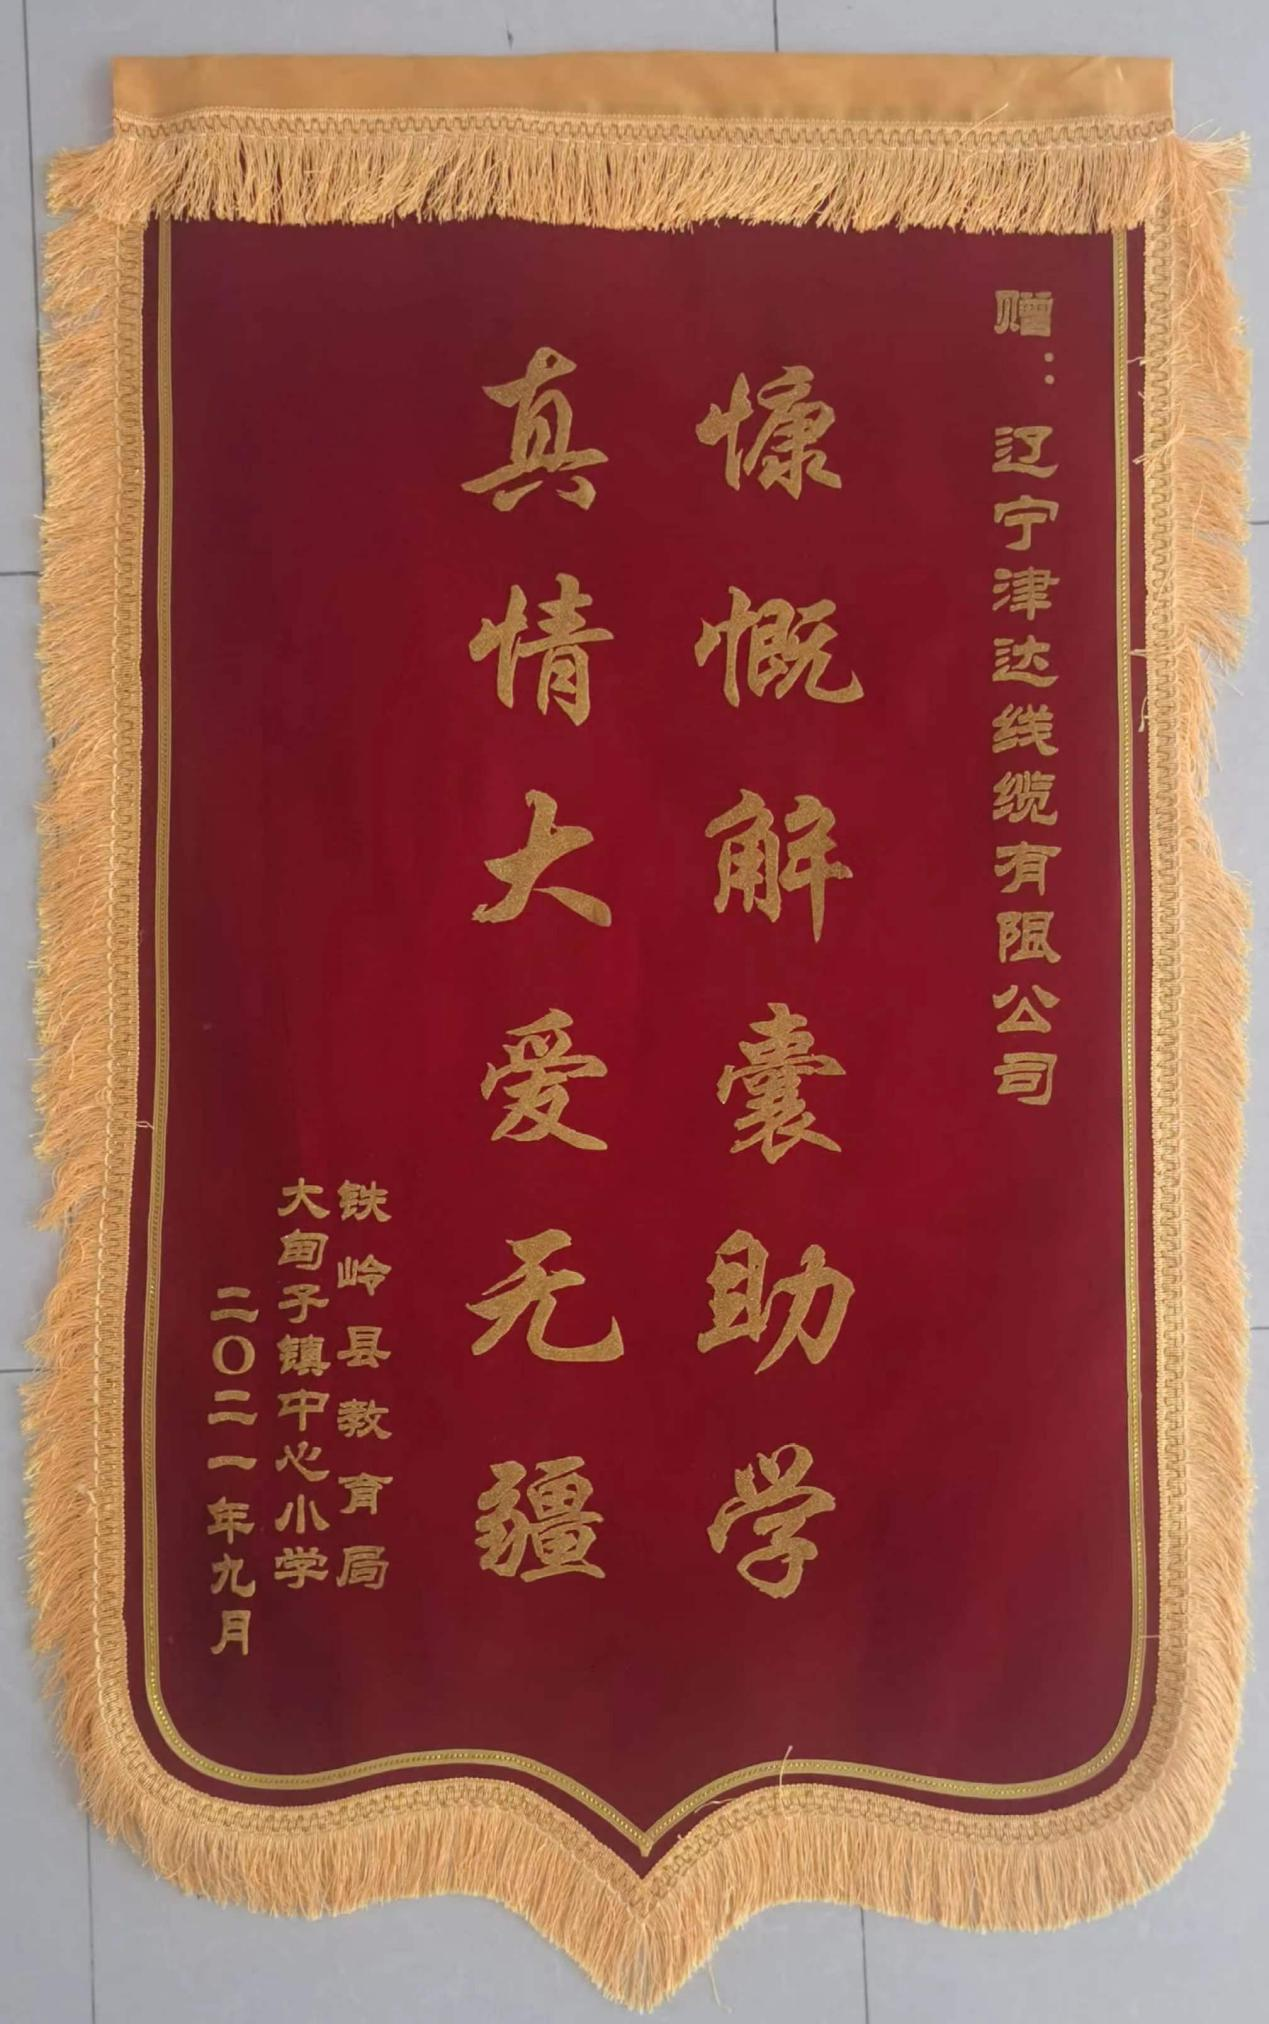 赠：辽宁津达线缆有限公司
慷慨解囊助学
真情大爱无疆
铁岭县教育局
大甸子镇中心小学
二〇二一年九月